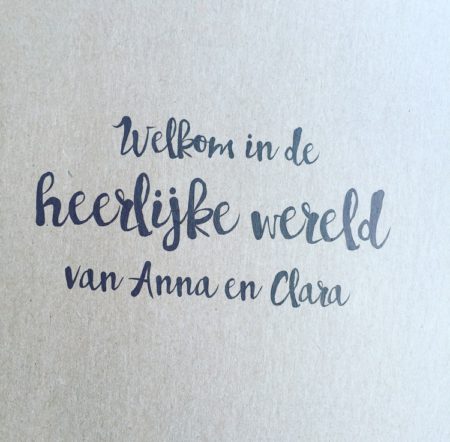 Welkom in de
heerlijke wereld
van Anna en Clara